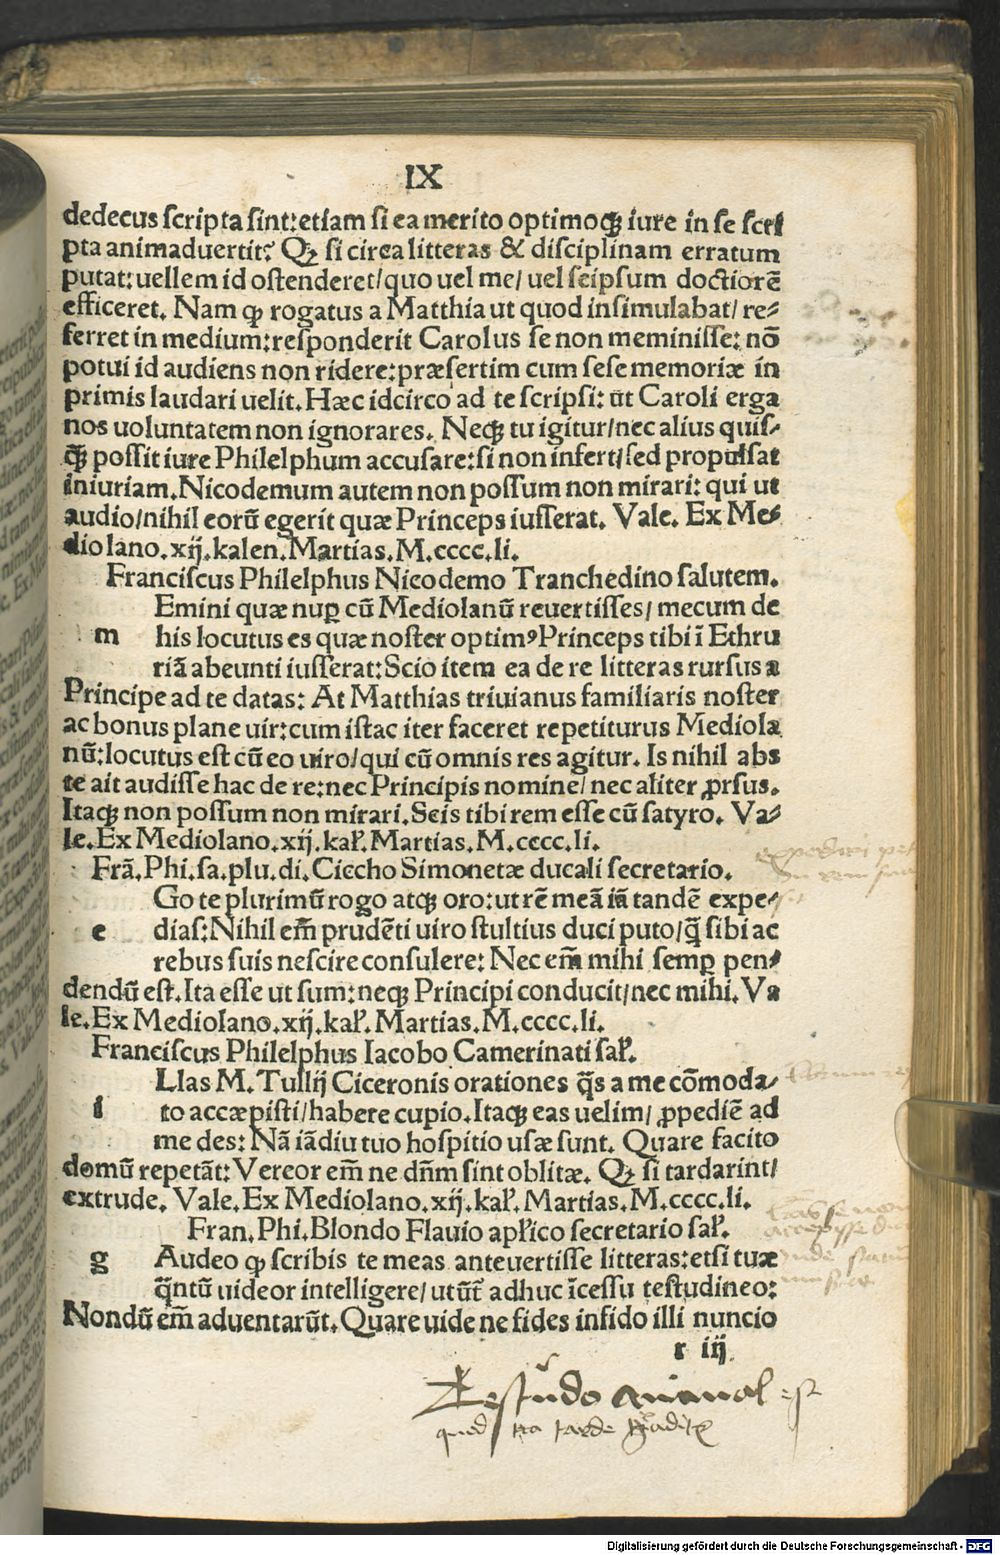 IX
dedecus scripta sint:etiam si ea merito optimoqꝫ iure in se scri
pta animaduertit? Qꝫ si circa litteras & disciplinam erratum
putat:uellem id ostenderet/quo uel me/uel seipsum doctiorē
efficeret. Nam ꝙ rogatus a Matthia ut quod insimulabat/re⸗
ferret in medium:responderit Carolus se non meminisse: nō
potui id audiens non ridere:præsertim cum sese memoriæ in
primis laudari uelit. Hæc idcirco ad te scripsi: ut Caroli erga
nos uoluntatem non ignorares. Neqꝫ tu igitur/nec alius quis⸗
q̄ꝫ possit iure Philelphum accusare:si non infert/sed propulsat
iniuriam. Nicodemum autem non possum non mirari: qui ut
audio/nihil eorū egerit quæ Princeps iusserat. Vale. Ex Me⸗
diolano.xij.kalen.Martias.M.cccc.li.
Franciscus Philelphus Nicodemo Tranchedino salutem.
Emini quæ nuꝑ cū Mediolanū reuertisses/mecum de
m his locutus es quæ noster optimꝰ Princeps tibi ī Ethru
riā abeunti iusserat:Scio item ea de re litteras rursus a
Principe ad te datas: At Matthias triuianus familiaris noster
ac bonus plane uir:cum istac iter faceret repetiturus Mediola
nū:locutus est cū eo uiro/qui cū omnis res agitur. Is nihil abs
te ait audisse hac de re:nec Principis nomine/nec aliter ꝓrsus.
Itaqꝫ non possum non mirari. Scis tibi rem esse cū satyro. Va⸗
le. Ex Mediolano.xij.kał. Martias.M.cccc.li.
Frā.Phi.sa.plu.di.Ciccho Simonetæ ducali secretario.
Go te plurimū rogo atqꝫ oro:ut rē meā iā tandē expe⸗
e dias:Nihil em̄ prudēti uiro stultius duci puto/q̄ sibi ac
rebus suis nescire consulere: Nec em̄ mihi semꝑ pen⸗
dendū est. Ita esse ut sum:neqꝫ Principi conducit/nec mihi. Va
le. Ex Mediolano.xij.kał. Martias.M.cccc.li.
Franciscus Philelphus Iacobo Camerinati sał.
Llas M. Tullij Ciceronis orationes q̄s a me cōmoda⸗
i to accæpisti/habere cupio. Itaqꝫ eas uelim/ꝓpediē ad
me des: Nā iādiu tuo hospitio usæ sunt. Quare facito
domū repetāt: Vereor em̄ ne dn̄m sint oblitæ. Qꝫ si tardarint/
extrude. Vale. Ex Mediolano.xij.kał. Martias.M.cccc.li.
Fran.Phi.Blondo Flauio apłico secretario sał.
g Audeo ꝙ scribis te meas anteuertisse litteras:etsi tuæ
q̄ntū uideor intelligere/utūt̄ adhuc īcessu testudineo:
Nondū em̄ aduentarūt. Quare uide ne fides infido illi nuncio
r iij
Testudo animal est
quod tarde
Digitalisierung gefördert durch die Deutsche Forschungsgemeinschaft - DFG